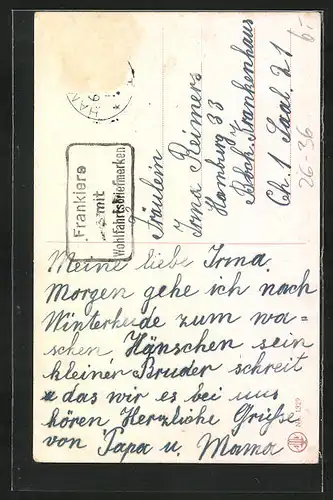 Frankiere
mit
Wohlfahrtsbriefmarken
Fräulein
Irma Reimers
Hamburg 33
Krankenhaus
Ch. 1 Saal 21
26-36
Meine liebe Irma.
Morgen gehe ich nach
Winterheide zum wa-
schen, Hänschen sein
kleiner Bruder schreit
das wir es bei uns
hören. Herzliche Grüße
von Papa u. Mama
No. 1329